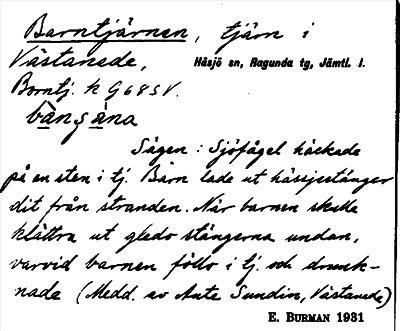 Barntjärnen, tjärn i
Västanede, Håsjö sn, Ragunda tg, Jämtl. l.
Borntj. k G68SV.
bånsåna
Sägen: Sjöfågel häckade
på en sten i tj. Barn lade ut hässjestänger
dit från stranden. När barnen skulle
klättra ut gledo stängerna undan,
varvid barnen föllo i tj. och drunk-
nade (Medd. av Ante Sundin, Västanede)
E. BURMAN 1931